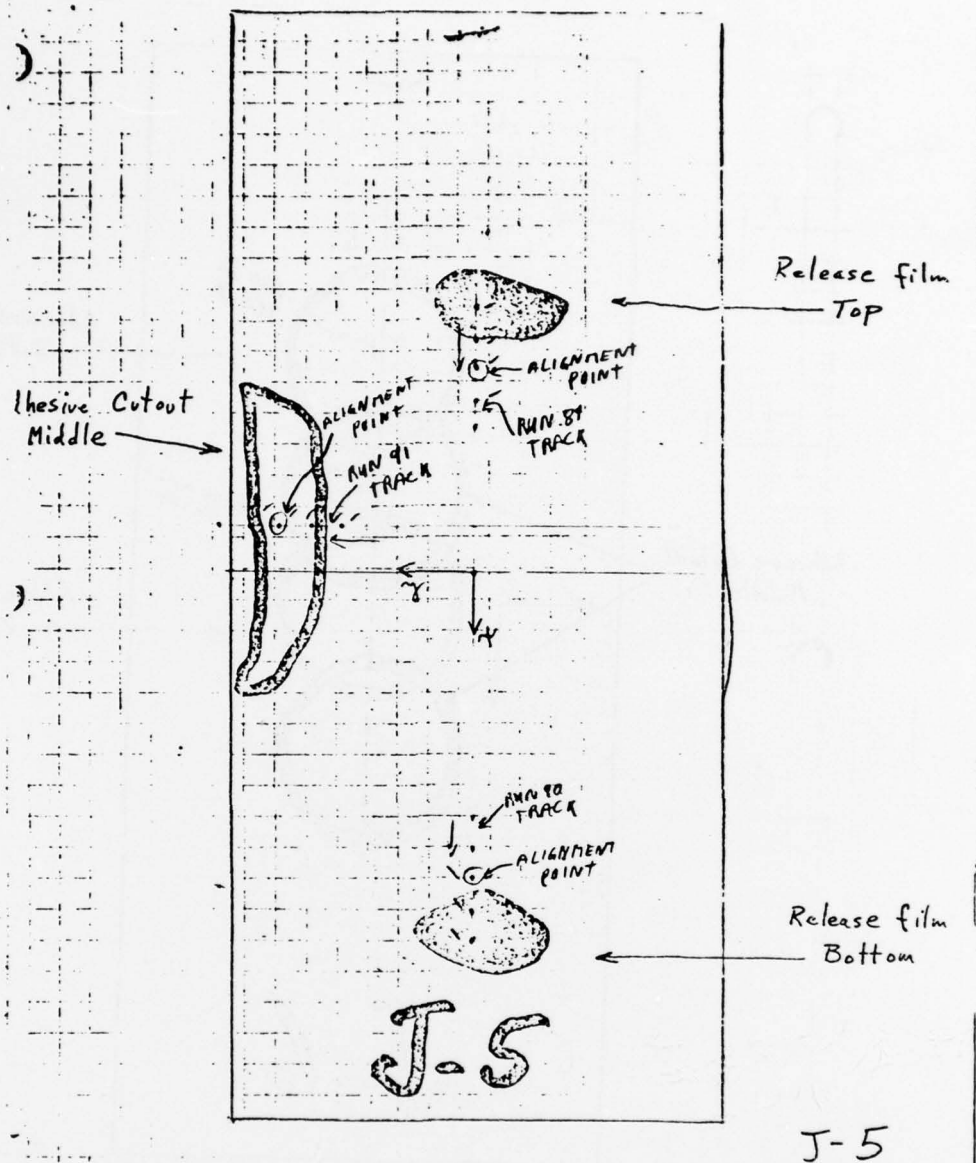 Release film
Top
ALIGNMENT
POINT
RUN 89
TRACK
hesive Cutout
Middle
ALIGNMENT
POINT
RUN 91
TRACK
RUN 90
TRACK
ALIGNMENT
POINT
Release film
Bottom
J-5
J-5